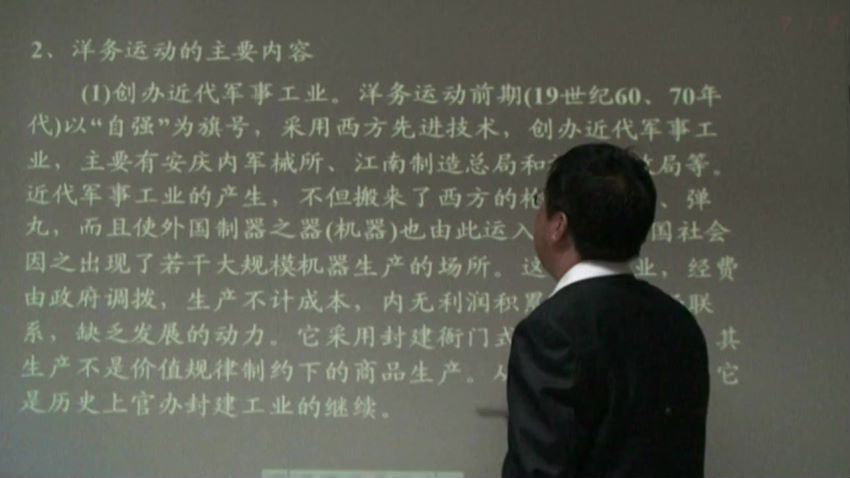 2、洋务运动的主要内容
(1)创办近代军事工业。洋务运动前期(19世纪60、70年
代)以“自强”为旗号，采用西方先进技术，创办近代军事工
业，主要有安庆内军械所、江南制造总局和 局等。
近代军事工业的产生，不但搬来了西方的枪 、弹
丸，而且使外国制器之器(机器)也由此运入 国社会
因之出现了若干大规模机器生产的场所。这 业，经费
由政府调拨，生产不计成本，内无利润积累 联
系，缺乏发展的动力。它采用封建衙门式 ，其
生产不是价值规律制约下的商品生产。从 它
是历史上官办封建工业的继续。